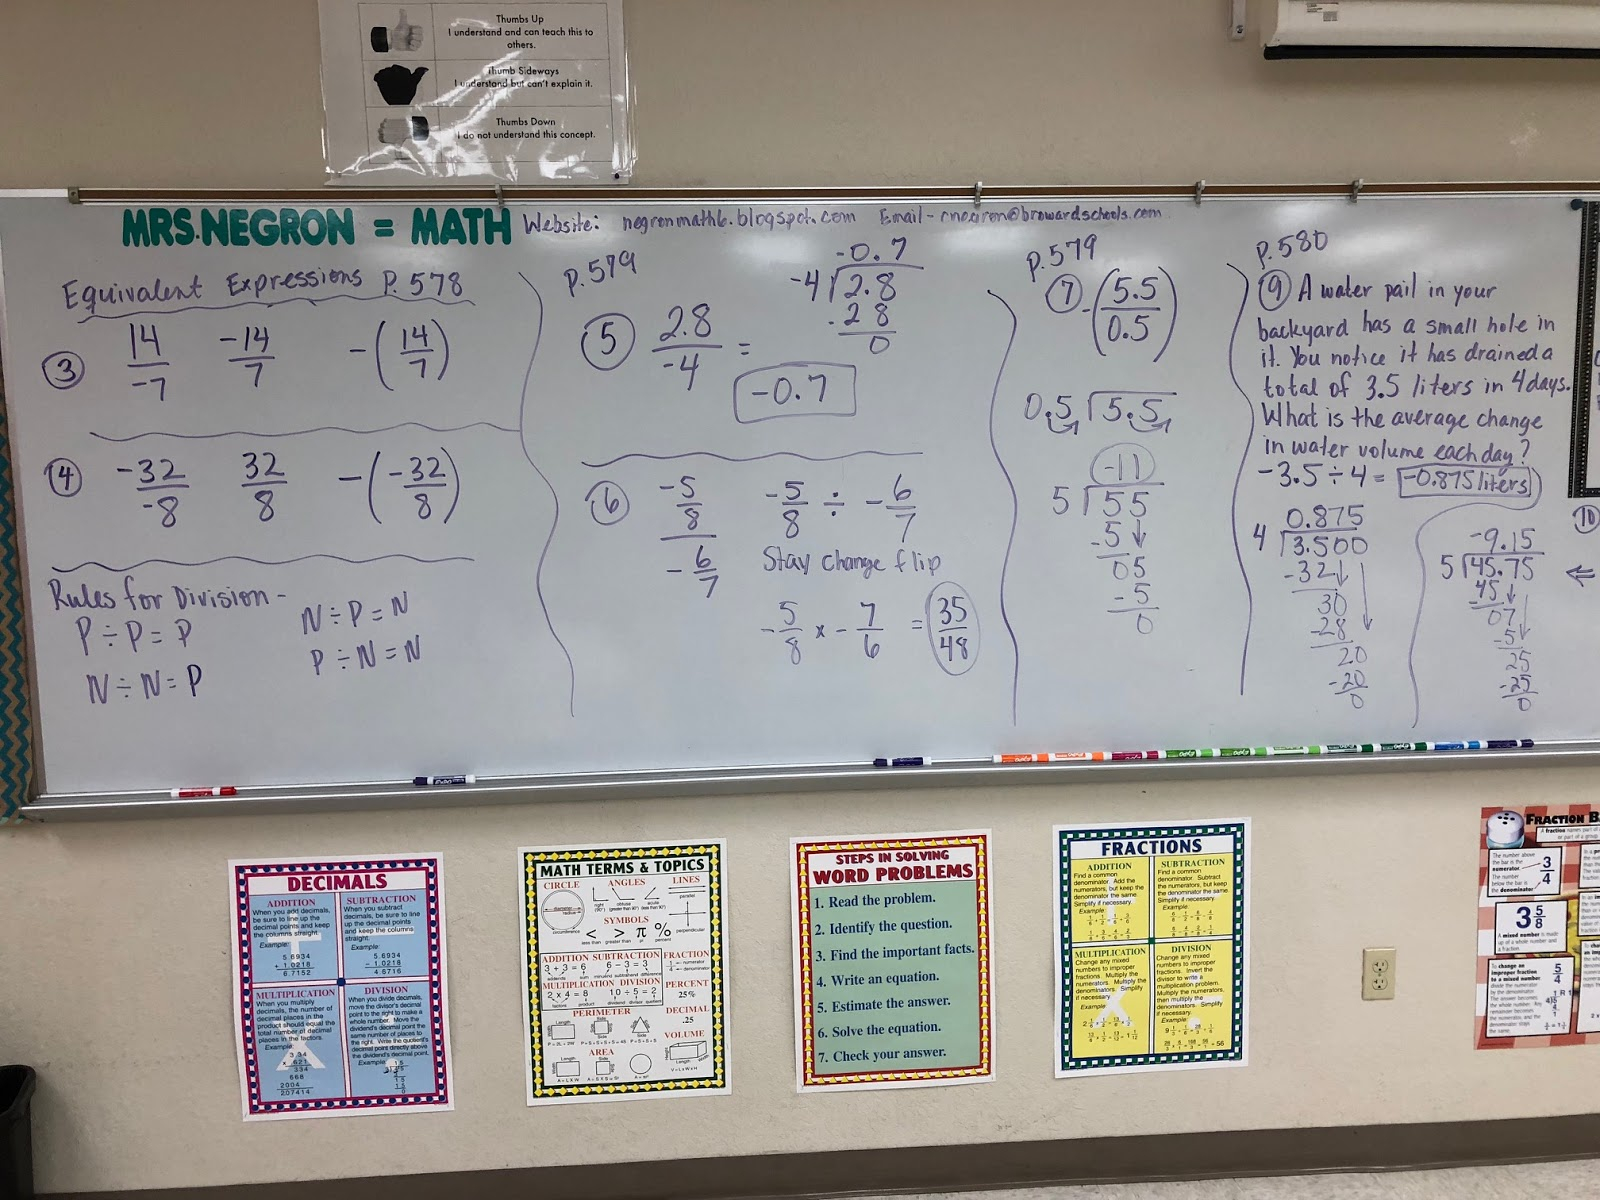 Thumbs Up
I understand and can teach this to
others.
Thumb Sideways
I understand but can't explain it.
Thumbs Down
I do not understand this concept.
MRS. NEGRON = MATH
Website: negronmath6.blogspot.com Email- cnegron@browardschools.com
Equivalent Expressions P. 578
③ 14/-7 -14/7 -(14/7)
④ -32/-8 32/8 -(-32/8)
Rules for Division -
P ÷ P = P
N ÷ N = P
N ÷ P = N
P ÷ N = N
P. 579
⑤ 2.8/-4 =
-0.7
-4 2.8
-28
0
-0.7
⑥ -5/8 / -6/7
-5/8 ÷ -6/7
Stay change flip
-5/8 x -7/6 = 35/48
P. 579
⑦ -(5.5/0.5)
0.5 5.5
-11
5 55
-5
05
-5
0
P. 580
⑨ A water pail in your
backyard has a small hole in
it. You notice it has drained a
total of 3.5 liters in 4 days.
What is the average change
in water volume each day?
-3.5 ÷ 4 = -0.875 liters
0.875
4 3.500
-32
30
-28
20
-20
0
⑩
-9.15
5 45.75
-45
07
-5
25
-25
0
DECIMALS
ADDITION
When you add decimals,
be sure to line up the
decimal points and keep
the columns straight.
Example:
5.6934
+ 1.0218
6.7152
SUBTRACTION
When you subtract
decimals, be sure to line
up the decimal points
and keep the columns
straight.
Example:
5.6934
- 1.0218
4.6716
MULTIPLICATION
When you multiply
decimals, the number of
decimal places in the
product should equal the
total number of decimal
places in the factors.
Example:
334
668
2004
207414
DIVISION
When you divide decimals,
move the divisor's decimal
point to the right to make a
whole number. Move the
dividend's decimal point the
same number of places to
the right. Write the quotient's
decimal point directly above
the dividend's decimal point.
Example:
MATH TERMS & TOPICS
CIRCLE
ANGLES
LINES
SYMBOLS
< > π %
less than greater than pi percent
ADDITION
3 + 3 = 6
SUBTRACTION
6 - 3 = 3
FRACTION
MULTIPLICATION
2 x 4 = 8
DIVISION
10 ÷ 5 = 2
PERCENT
25%
PERIMETER
DECIMAL
.25
AREA
VOLUME
STEPS IN SOLVING
WORD PROBLEMS
1. Read the problem.
2. Identify the question.
3. Find the important facts.
4. Write an equation.
5. Estimate the answer.
6. Solve the equation.
7. Check your answer.
FRACTIONS
ADDITION
Find a common
denominator. Add the
numerators, but keep
the denominator the
same. Simplify if
necessary.
Example:
SUBTRACTION
Find a common
denominator. Subtract
the numerators, but keep
the denominator the same.
Simplify if necessary.
Example:
MULTIPLICATION
Change any mixed
numbers to improper
fractions. Multiply the
numerators. Multiply the
denominators. Simplify
if necessary.
Example:
DIVISION
Change any mixed
numbers to improper
fractions. Invert the
divisor to write a
multiplication problem.
Multiply the numerators,
then multiply the
denominators. Simplify
if necessary.
Example:
FRACTION
The number above
the bar is the
numerator.
The number
below the bar is
the denominator.
3/4
3 5/8
A mixed number is made
up of a whole number and
a fraction.
To change an
improper fraction
to a mixed number,
5/4